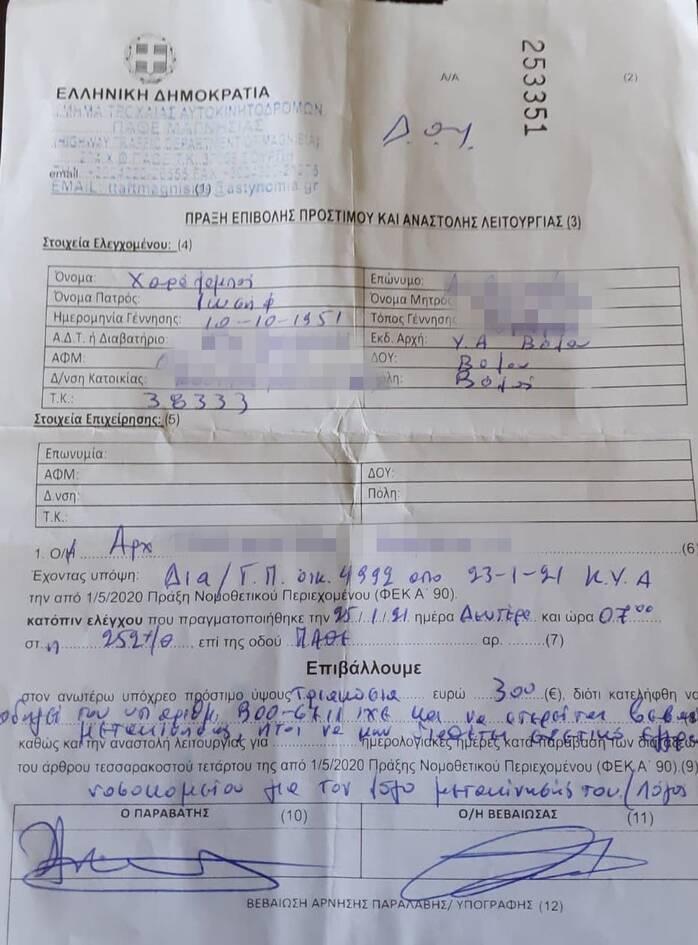 253351
Α/Α (2)
ΕΛΛΗΝΙΚΗ ΔΗΜΟΚΡΑΤΙΑ
ΤΜΗΜΑ ΤΡΟΧΑΙΑΣ ΑΥΤΟΚΙΝΗΤΟΔΡΟΜΩΝ
ΠΑΘΕ ΜΑΓΝΗΣΙΑΣ
(HIGHWAY TRAFFIC DEPARTMENT OF MAGNESIA)
Δ.Ο.Υ.
email
EMAIL: ttaftmagnis(1)@astynomia.gr
ΠΡΑΞΗ ΕΠΙΒΟΛΗΣ ΠΡΟΣΤΙΜΟΥ ΚΑΙ ΑΝΑΣΤΟΛΗΣ ΛΕΙΤΟΥΡΓΙΑΣ (3)
Στοιχεία Ελεγχομένου: (4)
Όνομα: Επώνυμο:
Όνομα Πατρός: Ιωσήφ Όνομα Μητρός
Ημερομηνία Γέννησης: 10-10-1951 Τόπος Γέννησης
Α.Δ.Τ. ή Διαβατήριο: Εκδ. Αρχή: Υ.Α Βόλου
ΑΦΜ: ΔΟΥ: Βόλου
Δ/νση Κατοικίας: Βόλος
Τ.Κ.: 38333
Στοιχεία Επιχείρησης: (5)
Επωνυμία:
ΑΦΜ: ΔΟΥ:
Δ.νση: Πόλη:
Τ.Κ.:
1. Ο/Η Αρχ (6
Έχοντας υπόψη: Δ1α/Γ.Π. οικ. 4992 από 23-1-21 Κ.Υ.Α
την από 1/5/2020 Πράξη Νομοθετικού Περιεχομένου (ΦΕΚ Α΄ 90).
κατόπιν ελέγχου που πραγματοποιήθηκε την 25/1/21 ημέρα Δευτέρα και ώρα 07 00
στ η 252 χ/θ, επί της οδού ΠΑΘΕ αρ. (7)
Επιβάλλουμε
στον ανωτέρω υπόχρεο πρόστιμο ύψους Τριακόσια ευρώ 300 (€), διότι κατελήφθη να
οδηγεί το υπ'αριθμ. ΙΧΕ και να στερείται
μετακίνησης ήτοι να μην
καθώς και την αναστολή λειτουργίας για ημερολογιακές ημέρες κατά παράβαση των
του άρθρου τεσσαρακοστού τετάρτου της από 1/5/2020 Πράξης Νομοθετικού Περιεχομένου (ΦΕΚ Α΄ 90).(9)
νοσοκομείου για τον λόγο μετακίνησής του
Ο ΠΑΡΑΒΑΤΗΣ (10) Ο/Η ΒΕΒΑΙΩΣΑΣ (11)
ΒΕΒΑΙΩΣΗ ΑΡΝΗΣΗΣ ΠΑΡΑΛΑΒΗΣ/ ΥΠΟΓΡΑΦΗΣ (12)